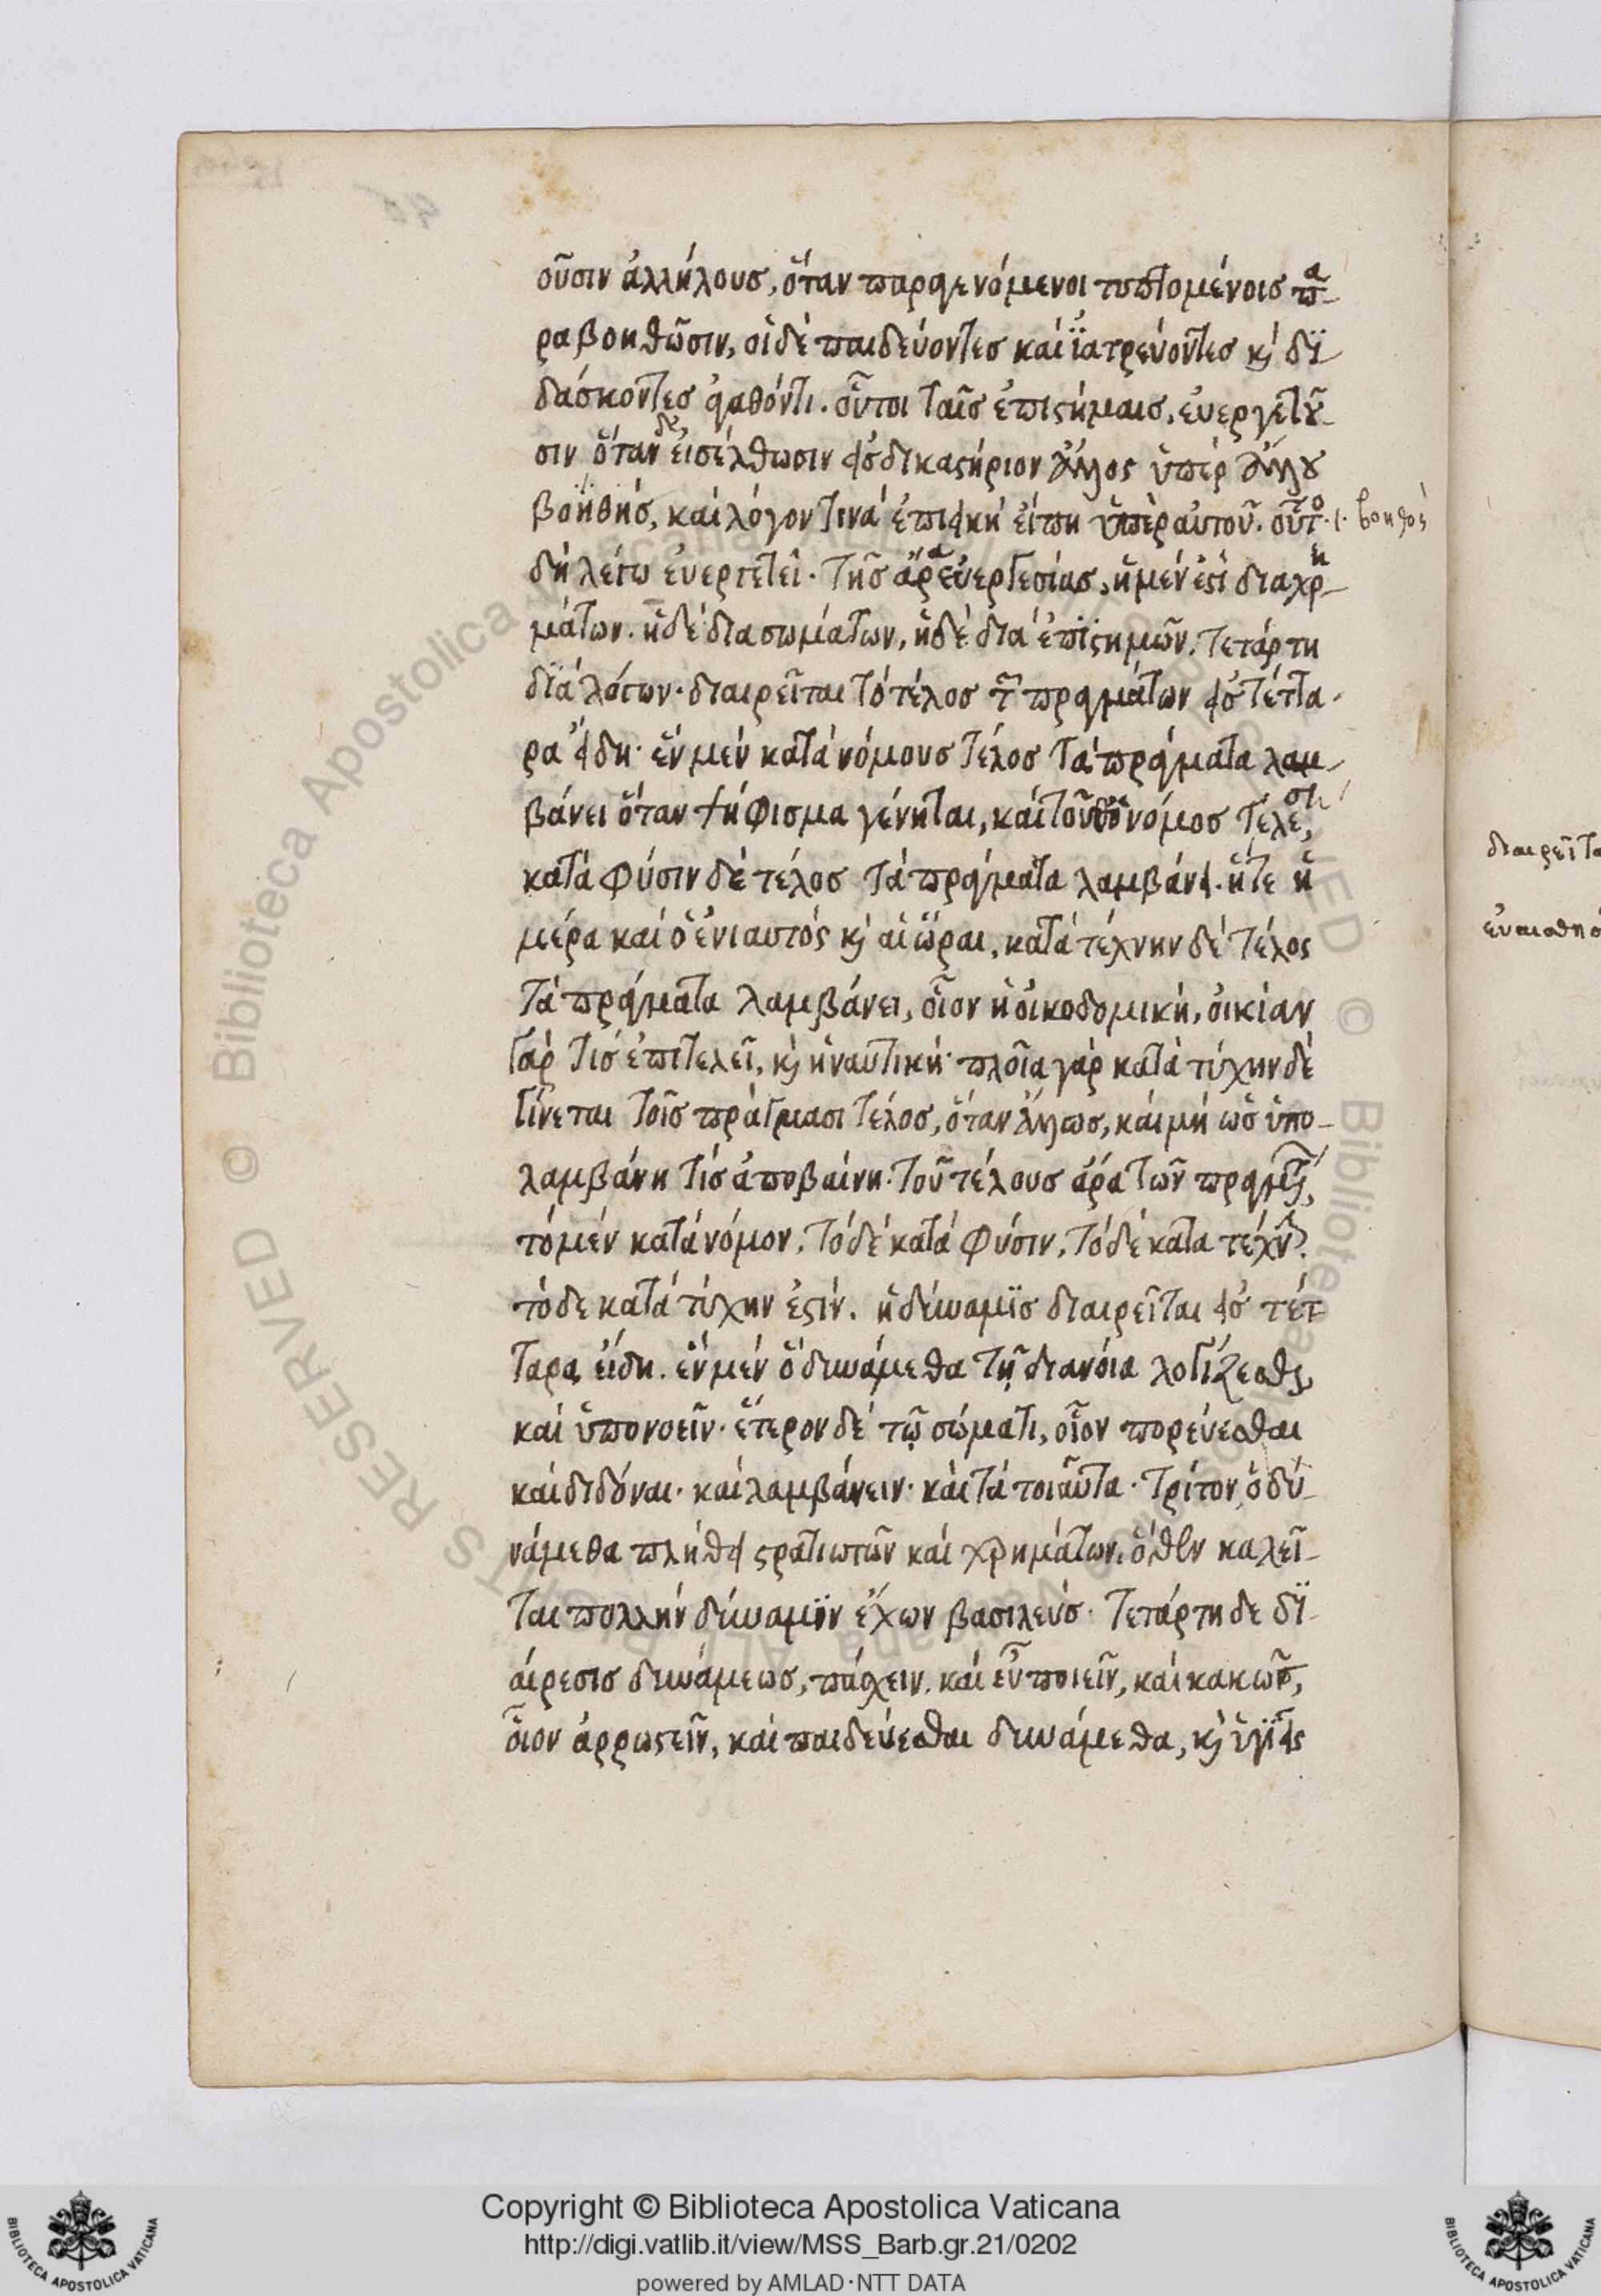 οῦσιν ἀλλήλους, ὅταν παραγενόμενοι τυπτομένοις πα
ραβοηθῶσιν, οἱ δὲ παιδεύοντες καὶ ἰατρεύοντες κ̀ δϊ
δάσκοντες ἀγαθόν τι. οὗτοι ταῖς ἐπιστήμαις, εὐεργετοῦ
σιν ὅταν δὲ εἰσέλθωσιν εἰς δικαστήριον ἄλλος ὑπὲρ ἄλλου
βοηθὴς, καὶ λόγον τινὰ ἐπιεικῆ εἴπη ὑπὲρ αὐτοῦ. οὗτο
βοηθὸς
δὴ λέγω εὐεργετεῖ. τῆς ἄρα εὐεργεσίας, ἡ μὲν ἐστὶ διαχρη
μάτων. ἡ δὲ διασωμάτων, ἡ δὲ διὰ ἐπϊστημῶν. τετάρτη
δϊὰ λόγων. διαιρεῖται τὸ τέλος τῶν πραγμάτων εἰς τέττα
ρα εἴδη. ἓν μὲν κατὰ νόμους τέλος τὰ πράγματα λαμ
βάνει ὅταν ψήφισμα γένηται, καὶ τοῦθ' ὁ νόμος τελέση
κατὰ φύσιν δὲ τέλος τὰ πράγματα λαμβάνει. ἥτε ἡ
μέρα καὶ ὁ ἐνιαυτὸς κ̀ αἱ ὧραι, κατὰ τέχνην δὲ τέλος
τὰ πράγματα λαμβάνει, οἷον ἡ οἰκοδομικὴ, οἰκίαν
γάρ τις ἐπιτελεῖ, κ̀ ἡ ναυτικὴ. πλοῖα γὰρ κατὰ τύχην δὲ
γίνεται τοῖς πράγμασι τέλος, ὅταν ἄλλως, καὶ μὴ ὡς ὑπο
λαμβάνη τίς ἀποβαίνη. τοῦ τέλους ἄρα τῶν πραγμάτων,
τὸ μὲν κατὰ νόμον, τὸ δὲ κατὰ φύσιν, τὸ δὲ κατα τέχνην.
τὸ δε κατὰ τύχην ἐστίν. ἡ δύναμϊς διαιρεῖται εἰς τέτ
ταρα εἴδη. ἓν μὲν ὃ δυνάμεθα τῇ διανόια λογίζεσθαι,
καὶ ὑπονοεῖν. ἕτερον δὲ τῷ σώματι, οἷον πορεύεσθαι
καὶ διδόναι. καὶ λαμβάνειν. καὶ τὰ τοιαῦτα. τρίτον, ὃ δυ
νάμεθα πλήθει στρατιωτῶν καὶ χρημάτων. ὅθεν καλεῖ
ται πολλὴν δύναμϊν ἔχων βασιλεὺς. τετάρτη δε δϊ
αίρεσις δυνάμεως, πάσχειν. καὶ εὖ ποιεῖν, καὶ κακῶς,
οἷον ἀρρωστεῖν, καὶ παιδεύεσθαι δυνάμεθα, κ̀ ὑγιεῖς
Copyright © Biblioteca Apostolica Vaticana
http://digi.vatlib.it/view/MSS_Barb.gr.21/0202
powered by AMLAD·NTT DATA